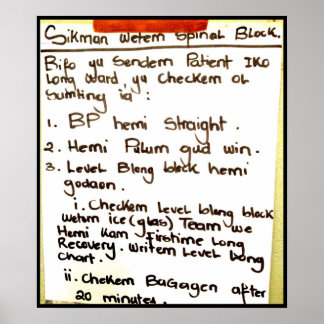 Sikman Wetem Spinal Block.
Bifo yu Sendem Patient IKo
Long Ward, yu Checkem ol
Sumting ia :
1. BP hemi Straight.
2. Hemi Pulum gud win.
3. Level Blong block hemi
godaon.
i. Checkem Level blong block
Wetem ice(glas) Team we
Hemi Kam Firstime Long
Recovery. Writem Level Long
Chart.
ii. Chekem BaGagen after
20 minutes.